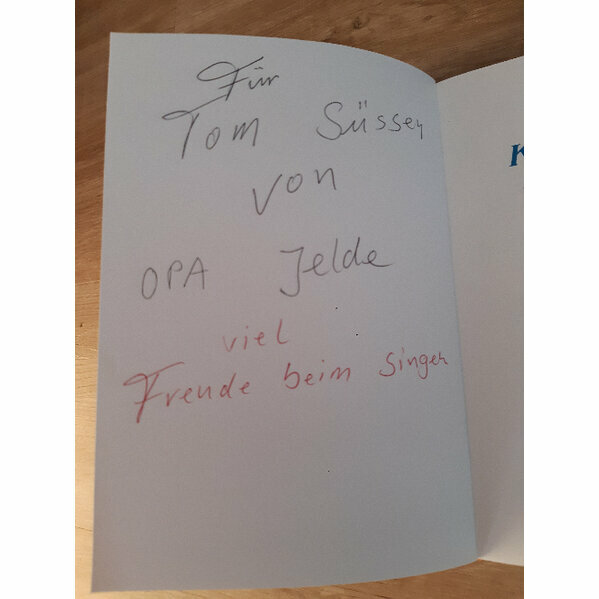 Für
Tom Süssen
von
OPA Jelde
viel
Freude beim Singen
K